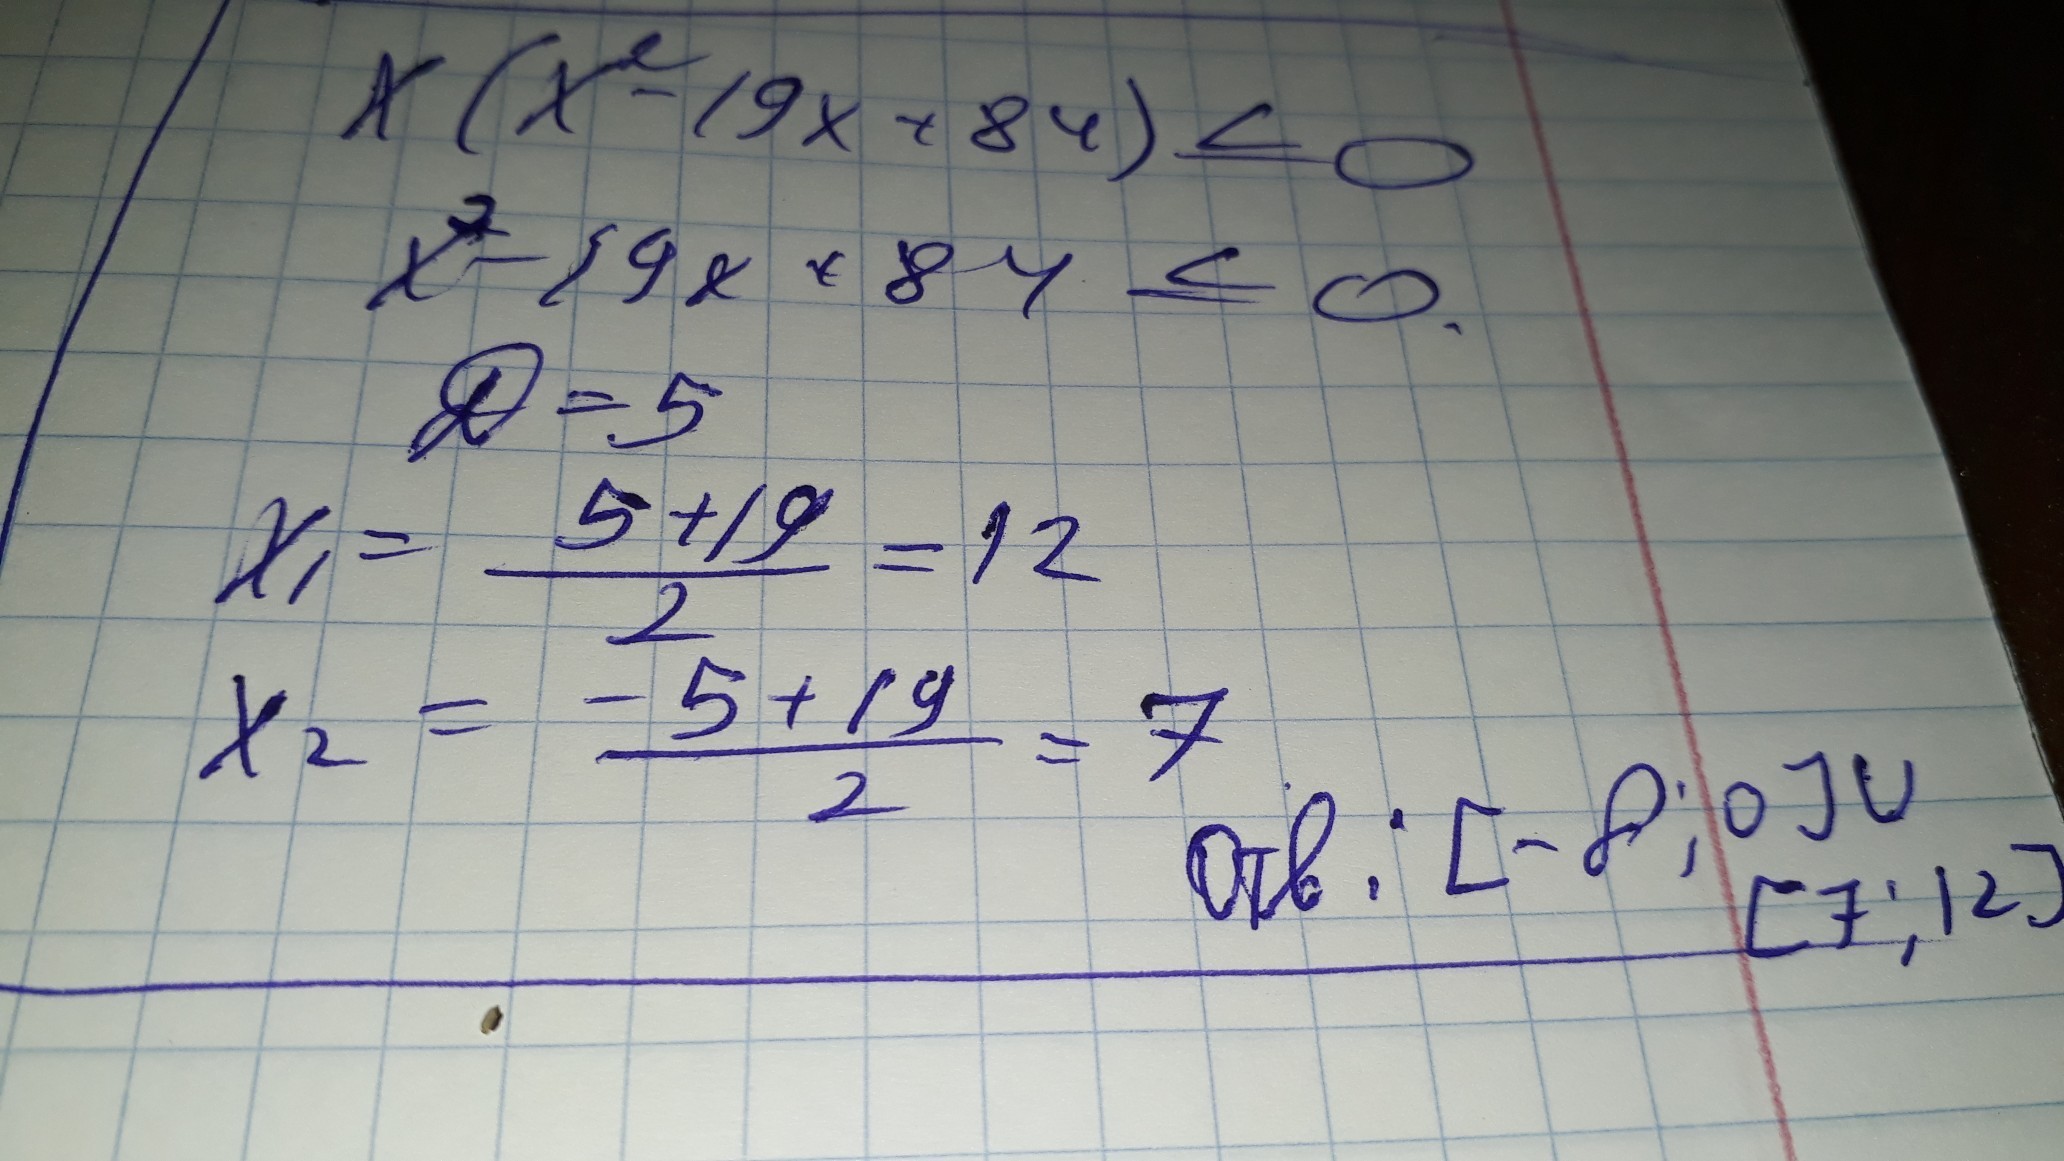 x(x²-19x+84)≤0
x²-19x+84≤0.
D=5
x₁= (5+19)/2 =12
x₂ = (-5+19)/2 = 7
Отв: [-8; 0]U
[7; 12]